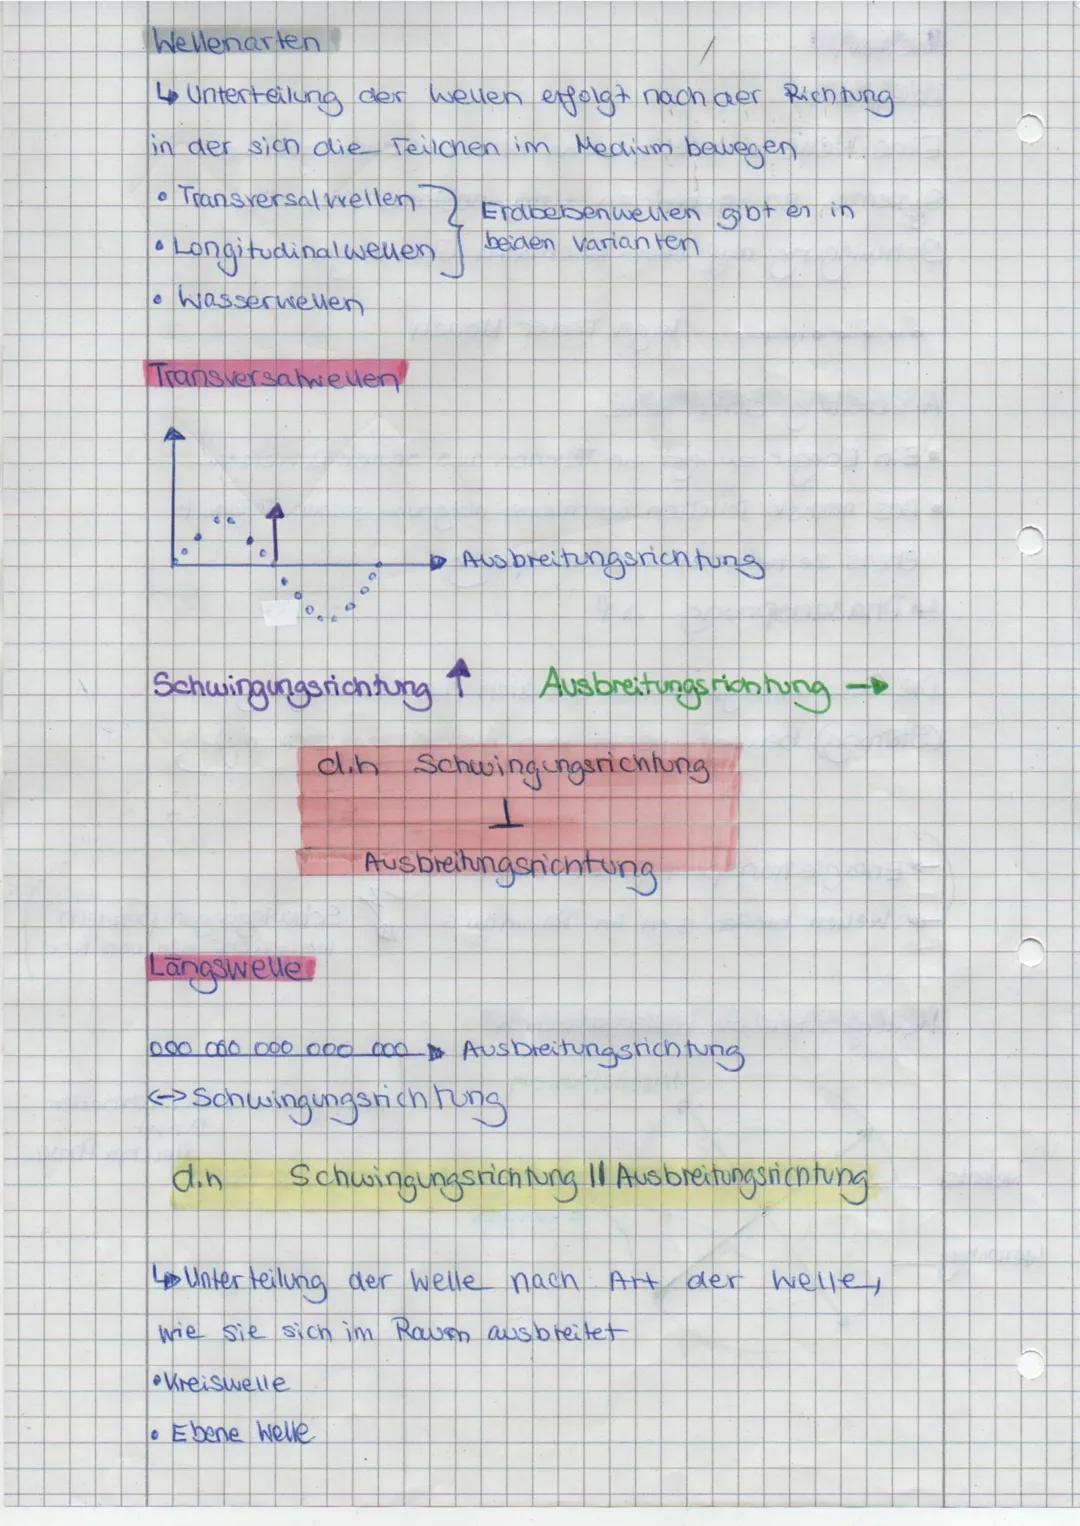 Wellenarten
↳ Unterteilung der Wellen erfolgt nach der Richtung
in der sich die Teilchen im Medium bewegen
• Transversalwellen } Erdbebenwellen gibt es in
• Longitudinalwellen beiden Varianten
• Wasserwellen
Transversalwellen
Ausbreitungsrichtung
Schwingungsrichtung ↑ Ausbreitungsrichtung →
d.h Schwingungsrichtung
⊥
Ausbreitungsrichtung
Längswelle
000 000 000 000 000 → Ausbreitungsrichtung
<-> Schwingungsrichtung
d.h Schwingungsrichtung || Ausbreitungsrichtung
↳ Unterteilung der Welle nach Art der Welle,
wie sie sich im Raum ausbreitet
• Kreiswelle
• Ebene Welle